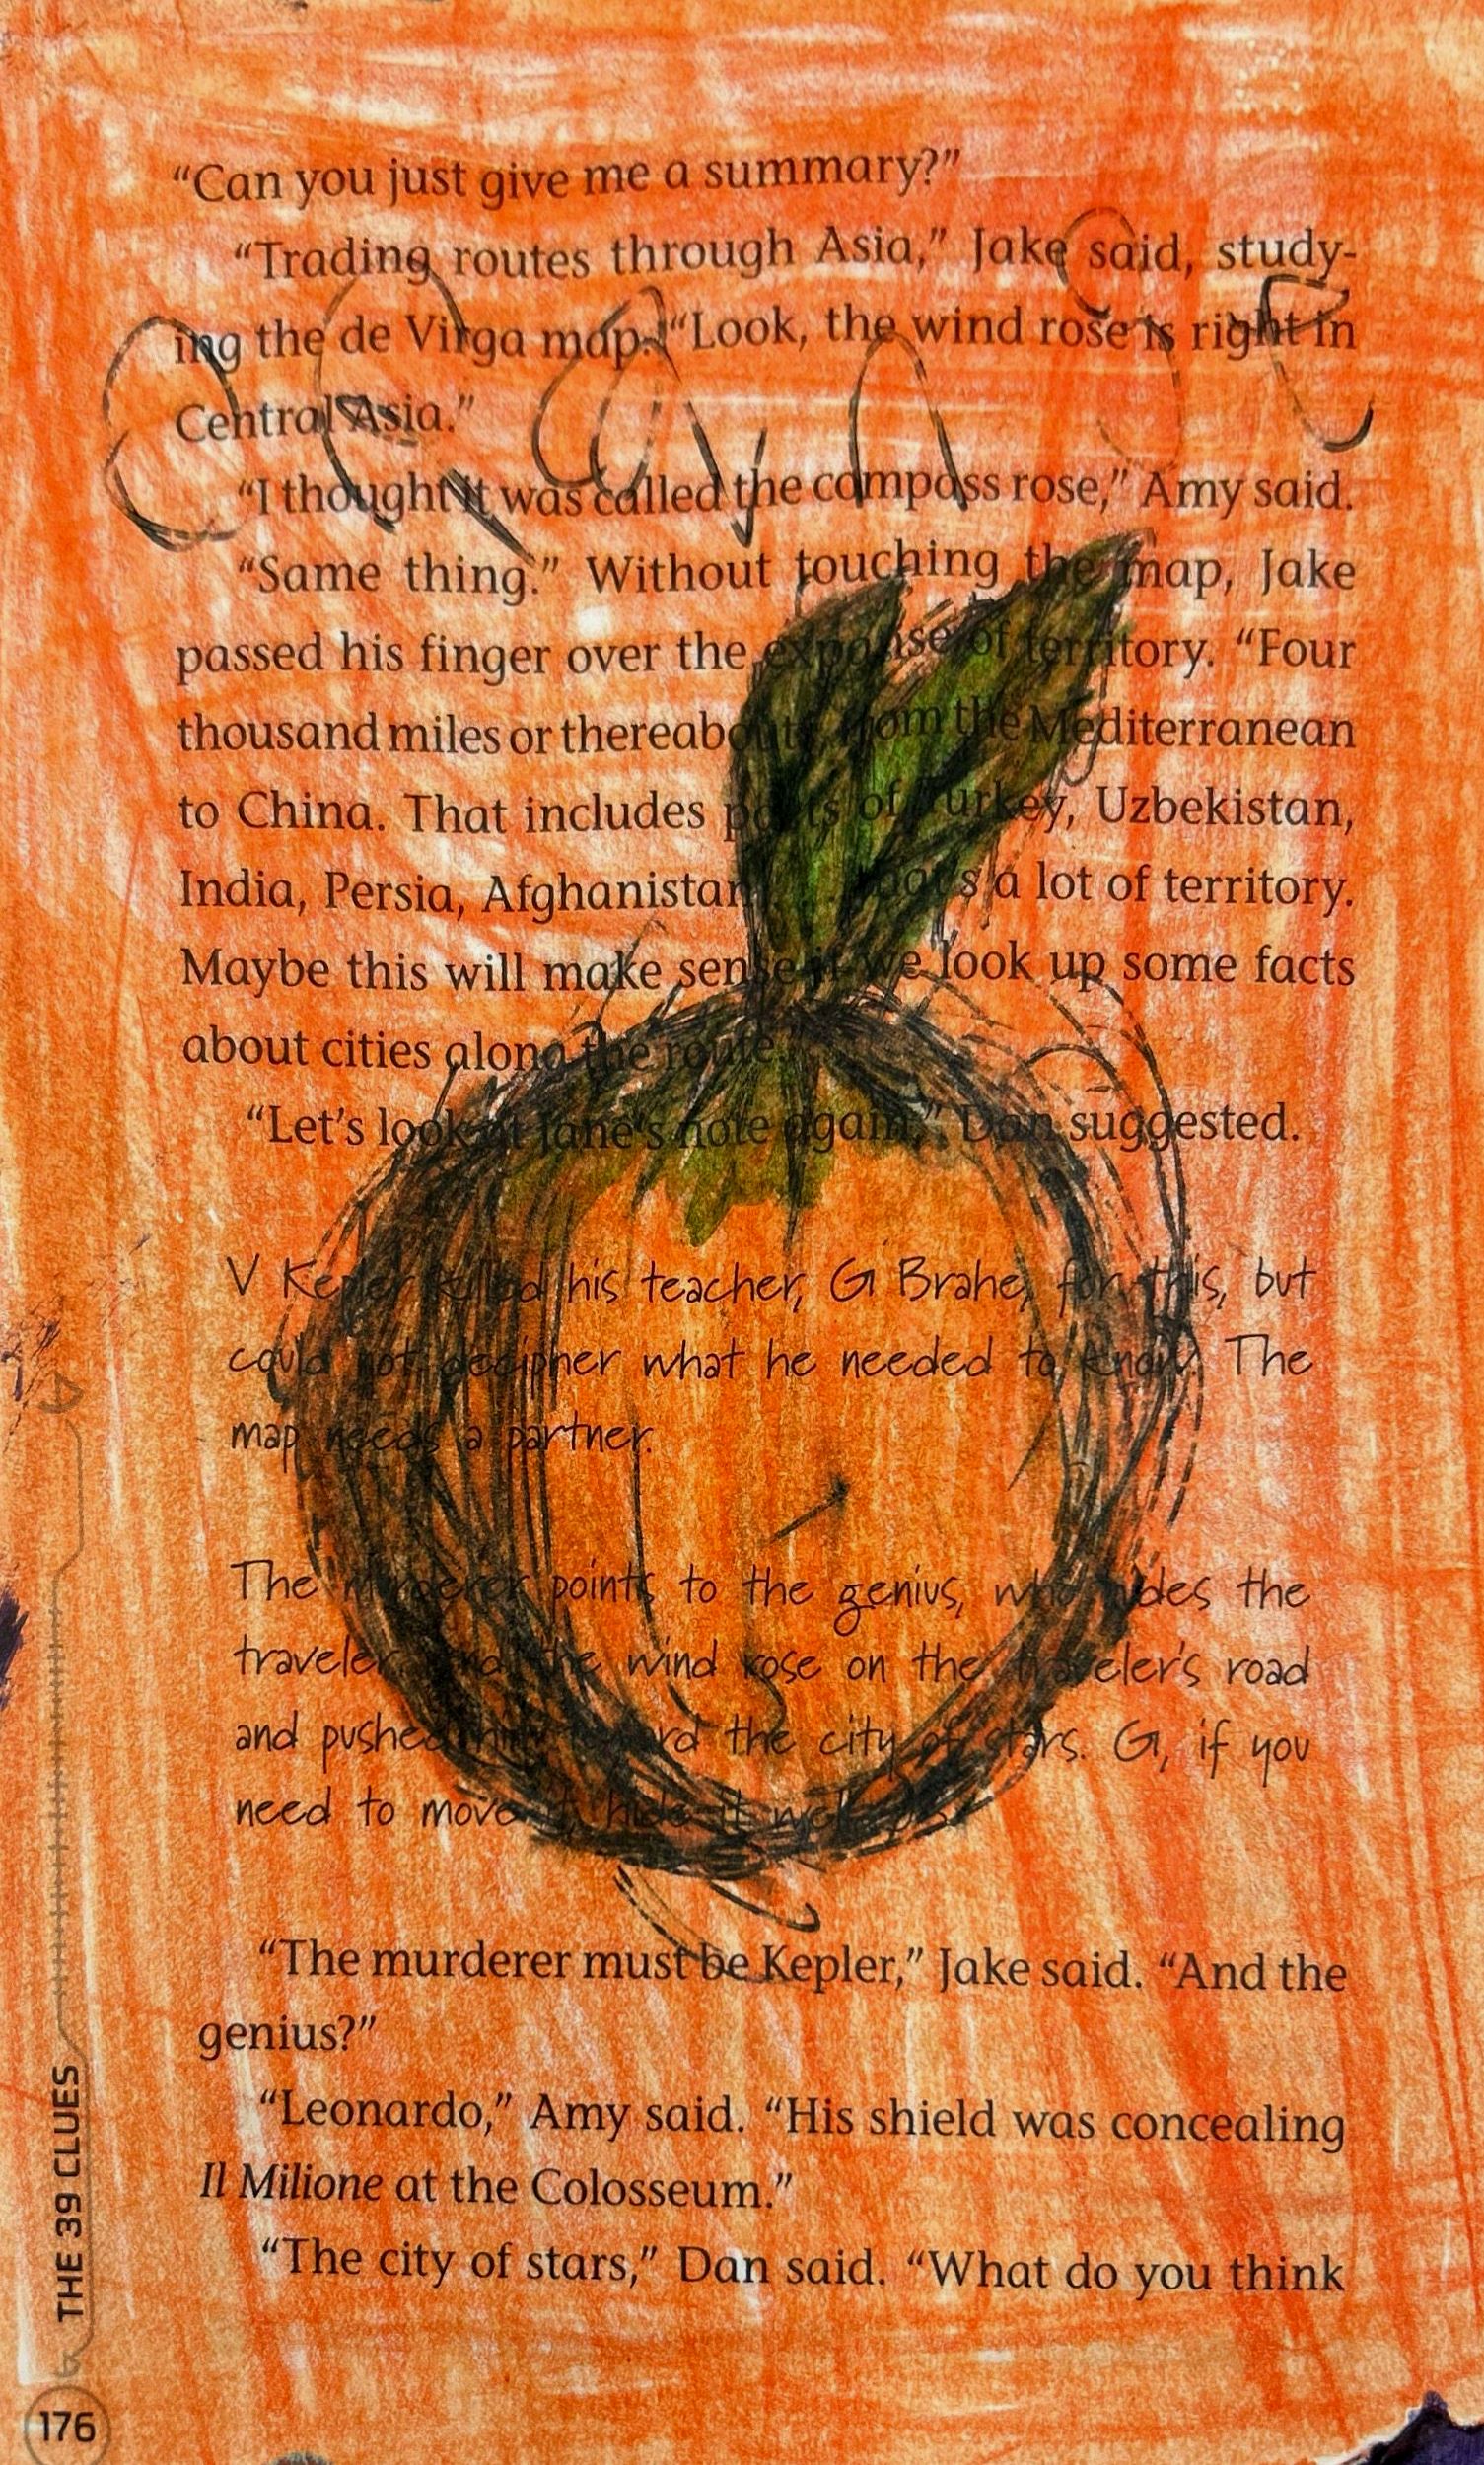 “Can you just give me a summary?”
“Trading routes through Asia,” Jake said, study-
ing the de Virga map. “Look, the wind rose is right in
Central Asia.”
“I thought it was called the compass rose,” Amy said.
“Same thing.” Without touching the map, Jake
passed his finger over the expanse of territory. “Four
thousand miles or thereabouts from the Mediterranean
to China. That includes parts of Turkey, Uzbekistan,
India, Persia, Afghanistan . . . that's a lot of territory.
Maybe this will make sense if we look up some facts
about cities along the route.”
“Let's look at Jane's note again,” Dan suggested.
V Kepler killed his teacher, G Brahe, for this, but
could not decipher what he needed to know. The
map needs a partner.
The murderer points to the genius, who hides the
traveler. Find the wind rose on the traveler's road
and pushed toward the city of stars. G, if you
need to move it, hide it well.
“The murderer must be Kepler,” Jake said. “And the
genius?”
“Leonardo,” Amy said. “His shield was concealing
Il Milione at the Colosseum.”
“The city of stars,” Dan said. “What do you think
THE 39 CLUES
176